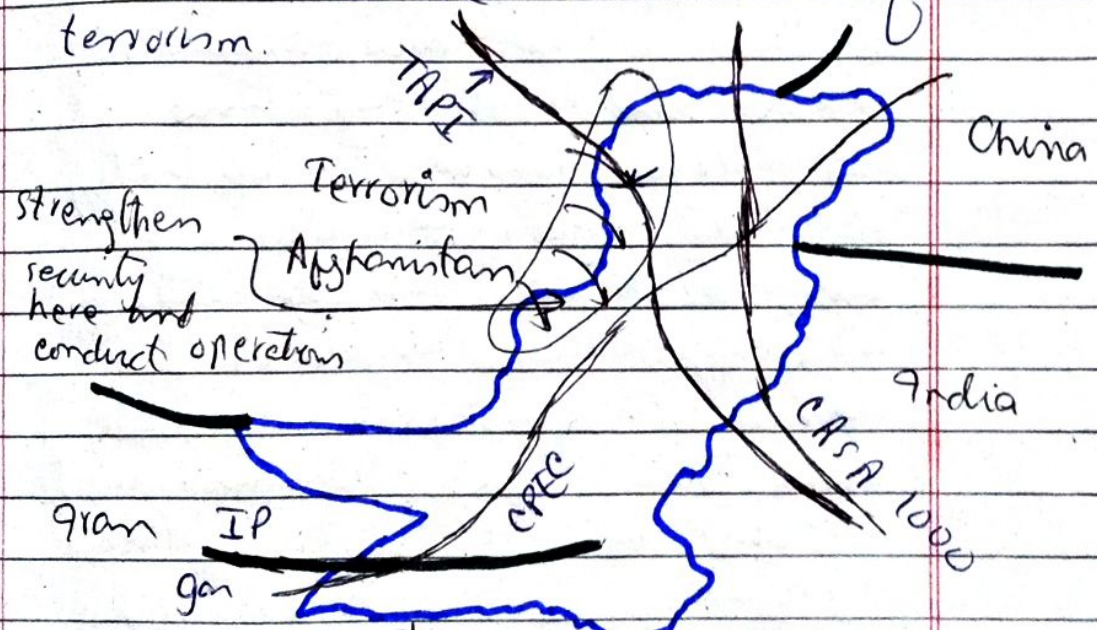 terrorism.
TAPI
China
Terrorism
strengthen
Afghanistan
security
here and
conduct operations
India
CASA 1000
CPEC
Iran IP
gas